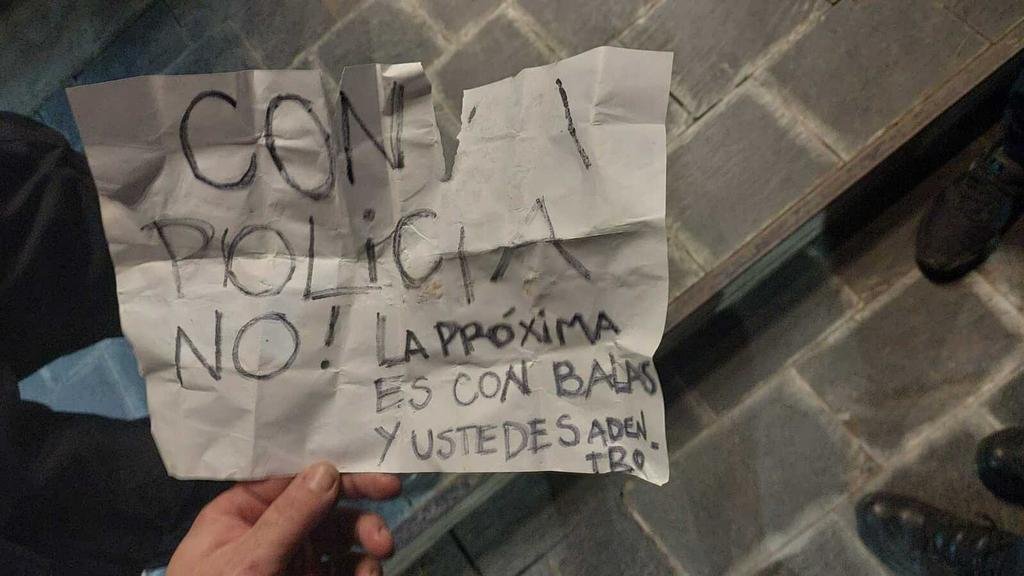 CON
POLiCIA
NO! LA PRÓXIMA
ES CON BALAS
Y USTEDES ADEN-
TRO